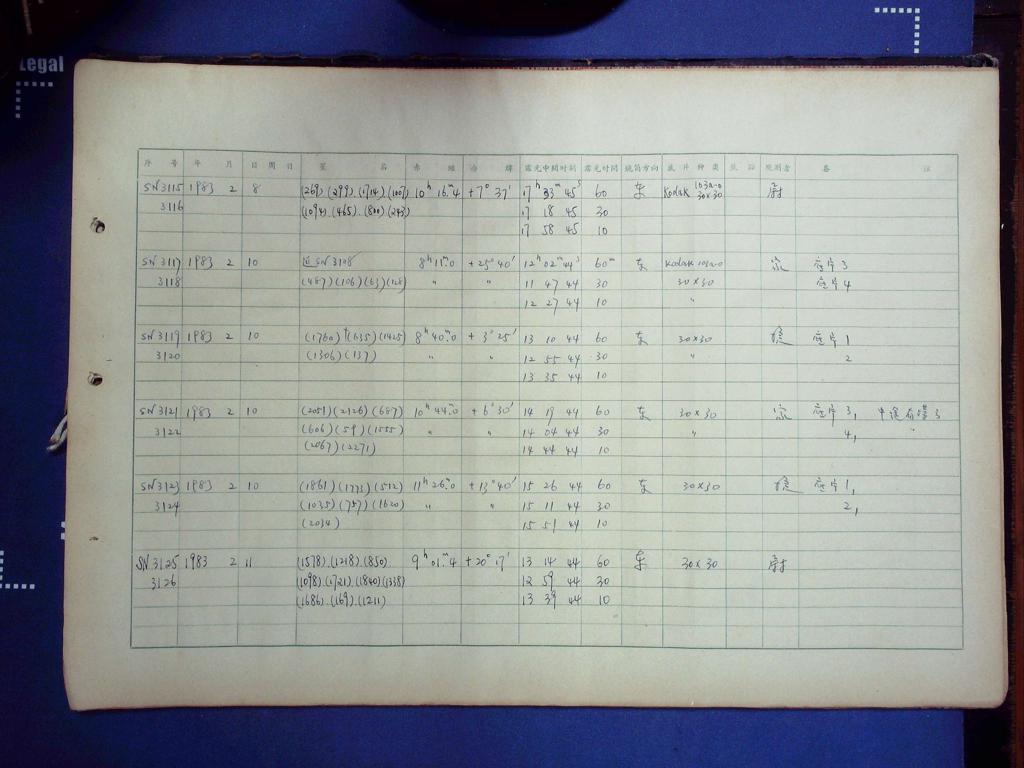 Legal
序号 年 月 日 周日 星名 赤经 赤纬 露光中间时刻 露光时间 镜筒方向 底片种类 观测者 备注
SN3115 1983 2 8 (269).(299).(1714).(1007) 10h 16m.4 +7° 37' 17h 33m 45s 60 东 Kodak 103a-o 30×30
3116 (1094).(465).(800)(243) 17 18 45 30
17 58 45 10
SN3117 1983 2 10 近SN3108 8h 11m.0 +25° 40' 12h 02m 44s 60m 东 Kodak 103a-o 底片3
3118 (487)(106)(63)(128) " " 11 47 44 30 30×30 底片4
12 27 44 10 "
SN3119 1983 2 10 (1760)(635)(1425) 8h 40m.0 +3° 25' 13 10 44 60 东 30×30 稳 底片1
3120 (1306)(137) " " 12 55 44 30 " 2
13 35 44 10
SN3121 1983 2 10 (2051)(2126)(687) 10h 44m.0 +6° 30' 14 19 44 60 东 30×30 底片3,
3122 (606)(59)(1555) " " 14 04 44 30 " 4, "
(2067)(2271) 14 44 44 10
SN3123 1983 2 10 (1861)(1773)(512) 11h 26m.0 +13° 40' 15 26 44 60 东 30×30 稳 底片1,
3124 (1035)(757)(1620) " " 15 11 44 30 2,
(2034) 15 51 44 10
SN3125 1983 2 11 (1578).(1218).(850) 9h 01m.4 +20° 17' 13 14 44 60 东 30×30
3126 (1098).(1721).(1840)(1338) 12 59 44 30
(1686).(169).(1211) 13 39 44 10